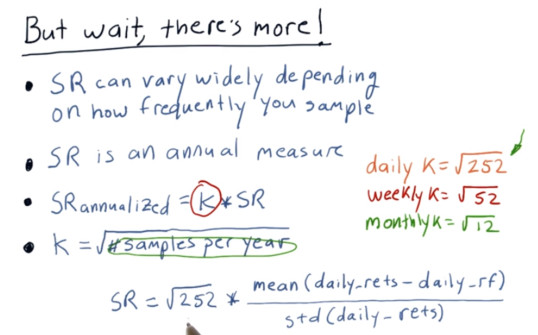 But wait, there's more!
• SR can vary widely depending
on how frequently you sample
• SR is an annual measure
• SRannualized = K * SR
• K = √#samples per year
daily K = √252
weekly K = √52
monthly K = √12
SR = √252 * mean (daily_rets - daily_rf)
std (daily_rets)